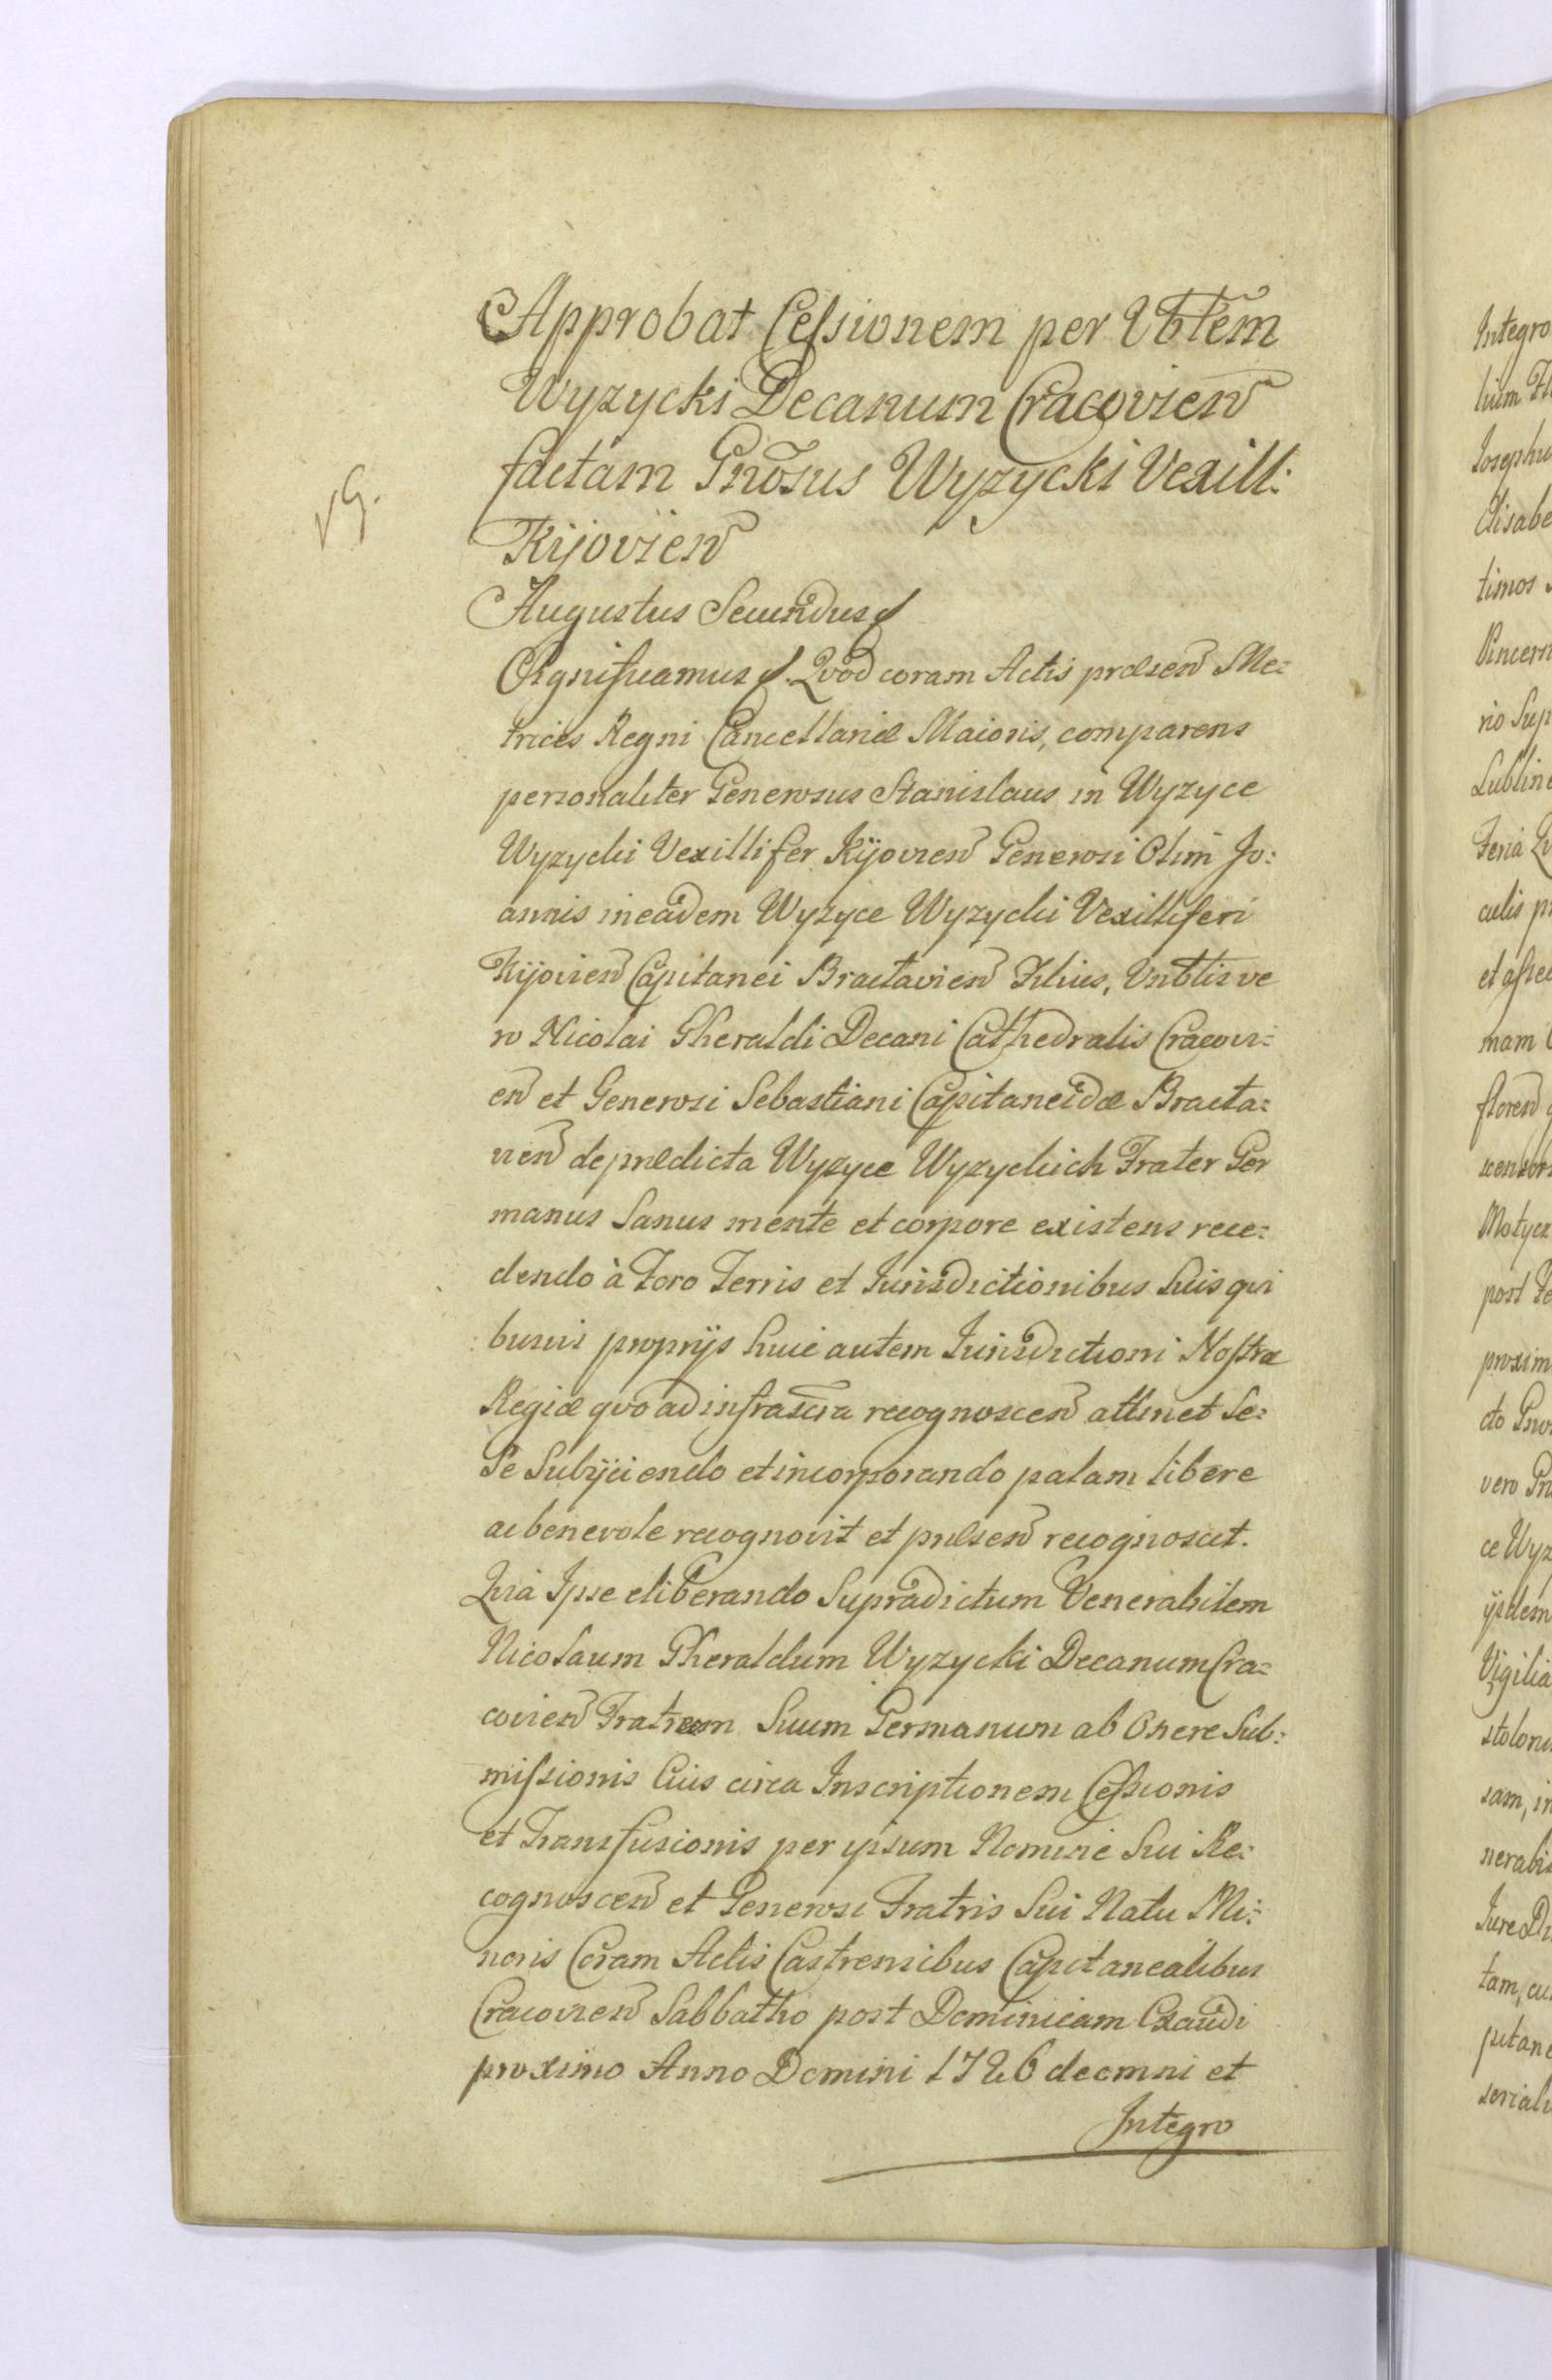 Approbat Cessionem per Vblem
Wyzycki Decanum Cracovien
factam Gnosus Wyzycki Vexill:
Kijovien
Augustus Secundus
Significamus Quod coram Actis præsen Me=
trices Regni Cancellariæ Maioris, comparens
personaliter Generosus Stanislaus in Wyzyce
Wyzycki Vexillifer Kijovien Generosi Olim Jo:
annis in eadem Wyzyce Wyzycki Vexilliferi
Kijovien Capitanei Bractavien Filius, Vnblis ve
ro Nicolai Gheraldi Decani Cathedralis Cracovi=
en et Generosi Sebastiani Capitaneidæ Bracta=
vien de prædicta Wyzyce Wyzyckich Frater Ger
manus Sanus mente et corpore existens rece:
dendo à Foro Terris et Jurisdictionibus Suis qui
busvis proprijs huic autem Jurisdictioni Nostræ
Regiæ quo ad infrascra recognoscen attinet Se:
Se Subijciendo et incorporando palam libere
ac benevole recognovit et præsen recognoscit.
Quia Ipse eliberando Supradictum Venerabilem
Nicolaum Gheraldum Wyzycki Decanum Cra=
covien Fratrem Suum Germanum ab Onere Sub:
missionis Eius circa Inscriptionem Cessionis
et Transfusionis per ipsum Nomine Sui Re:
cognoscen et Generosi Fratris Sui Natu Mi:
noris Coram Actis Castrensibus Capitanealibus
Cracovien Sabbatho post Dominicam Exaudi
proximo Anno Domini 1726 de omni et
Integro